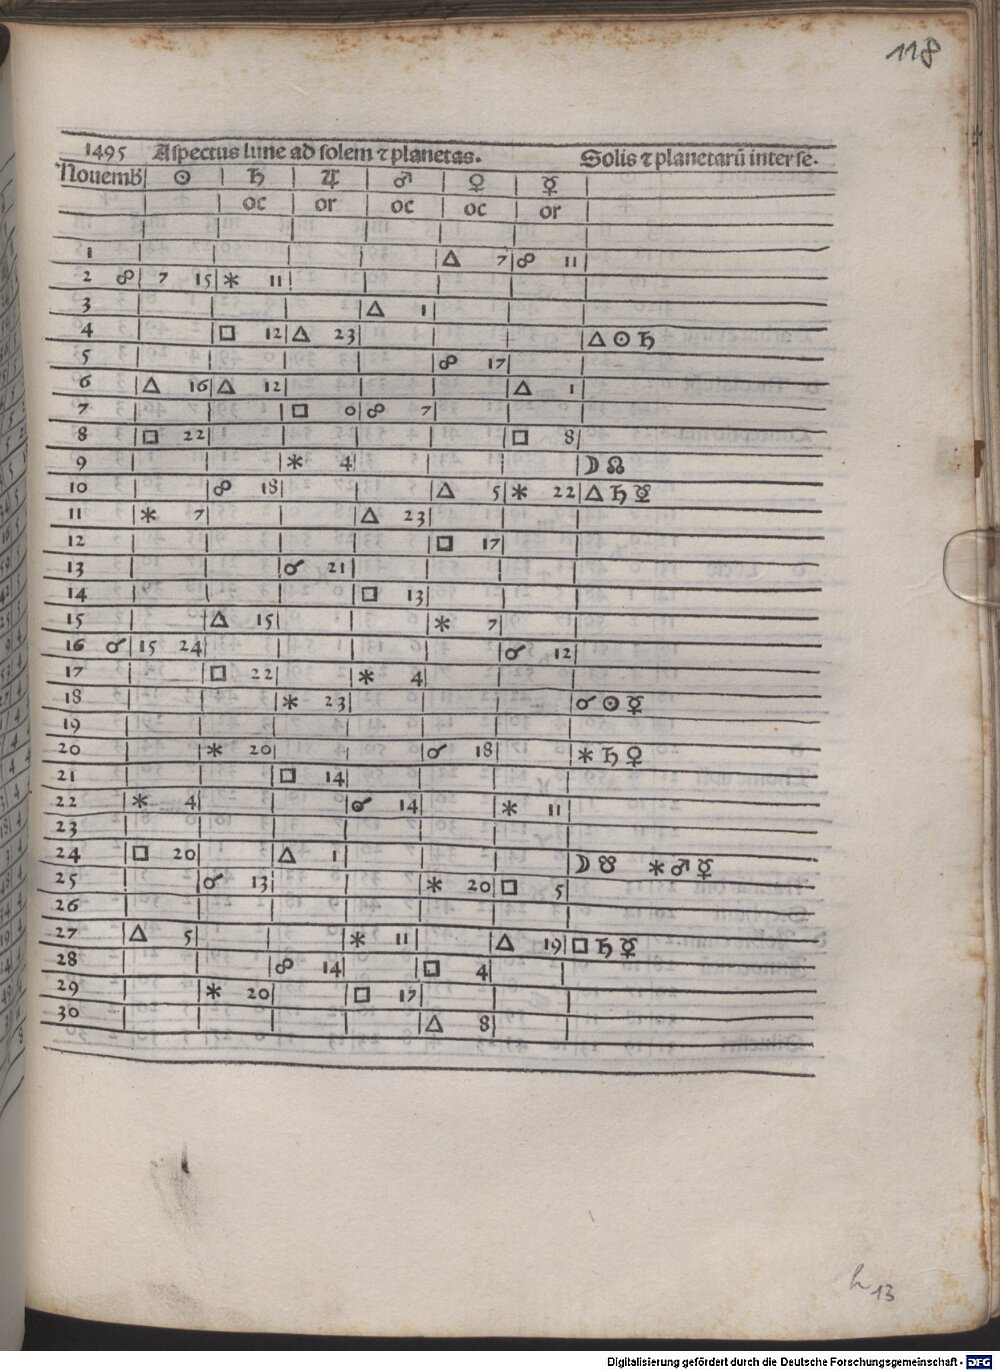 118
1495 Aspectus lune ad solem ⁊ planetas. Solis ⁊ planetarū inter se.
Nouemb ☉ ♄ ♃ ♂ ♀ ☿
oc or oc oc or
1 △ 7 ☍ 11
2 ☍ 7 15 ⚹ 11
3 △ 1
4 □ 12 △ 23 △ ☉ ♄
5 ☍ 17
6 △ 16 △ 12 △ 1
7 □ 0 ☍ 7
8 □ 22 □ 8
9 ⚹ 4 ☽ ☊
10 ☍ 18 △ 5 ⚹ 22 △ ♄ ☿
11 ⚹ 7 △ 23
12 □ 17
13 ☌ 21
14 □ 13
15 △ 15 ⚹ 7
16 ☌ 15 24 ☌ 12
17 □ 22 ⚹ 4
18 ⚹ 23 ☌ ☉ ☿
19
20 ⚹ 20 ☌ 18 ⚹ ♄ ♀
21 □ 14
22 ⚹ 4 ☌ 14 ⚹ 11
23
24 □ 20 △ 1 ☽ ☋ ⚹ ♂ ☿
25 ☌ 13 ⚹ 20 □ 5
26
27 △ 5 ⚹ 11 △ 19 □ ♄ ☿
28 ☍ 14 □ 4
29 ⚹ 20 □ 17
30 △ 8
h 13
Digitalisierung gefördert durch die Deutsche Forschungsgemeinschaft - DFG